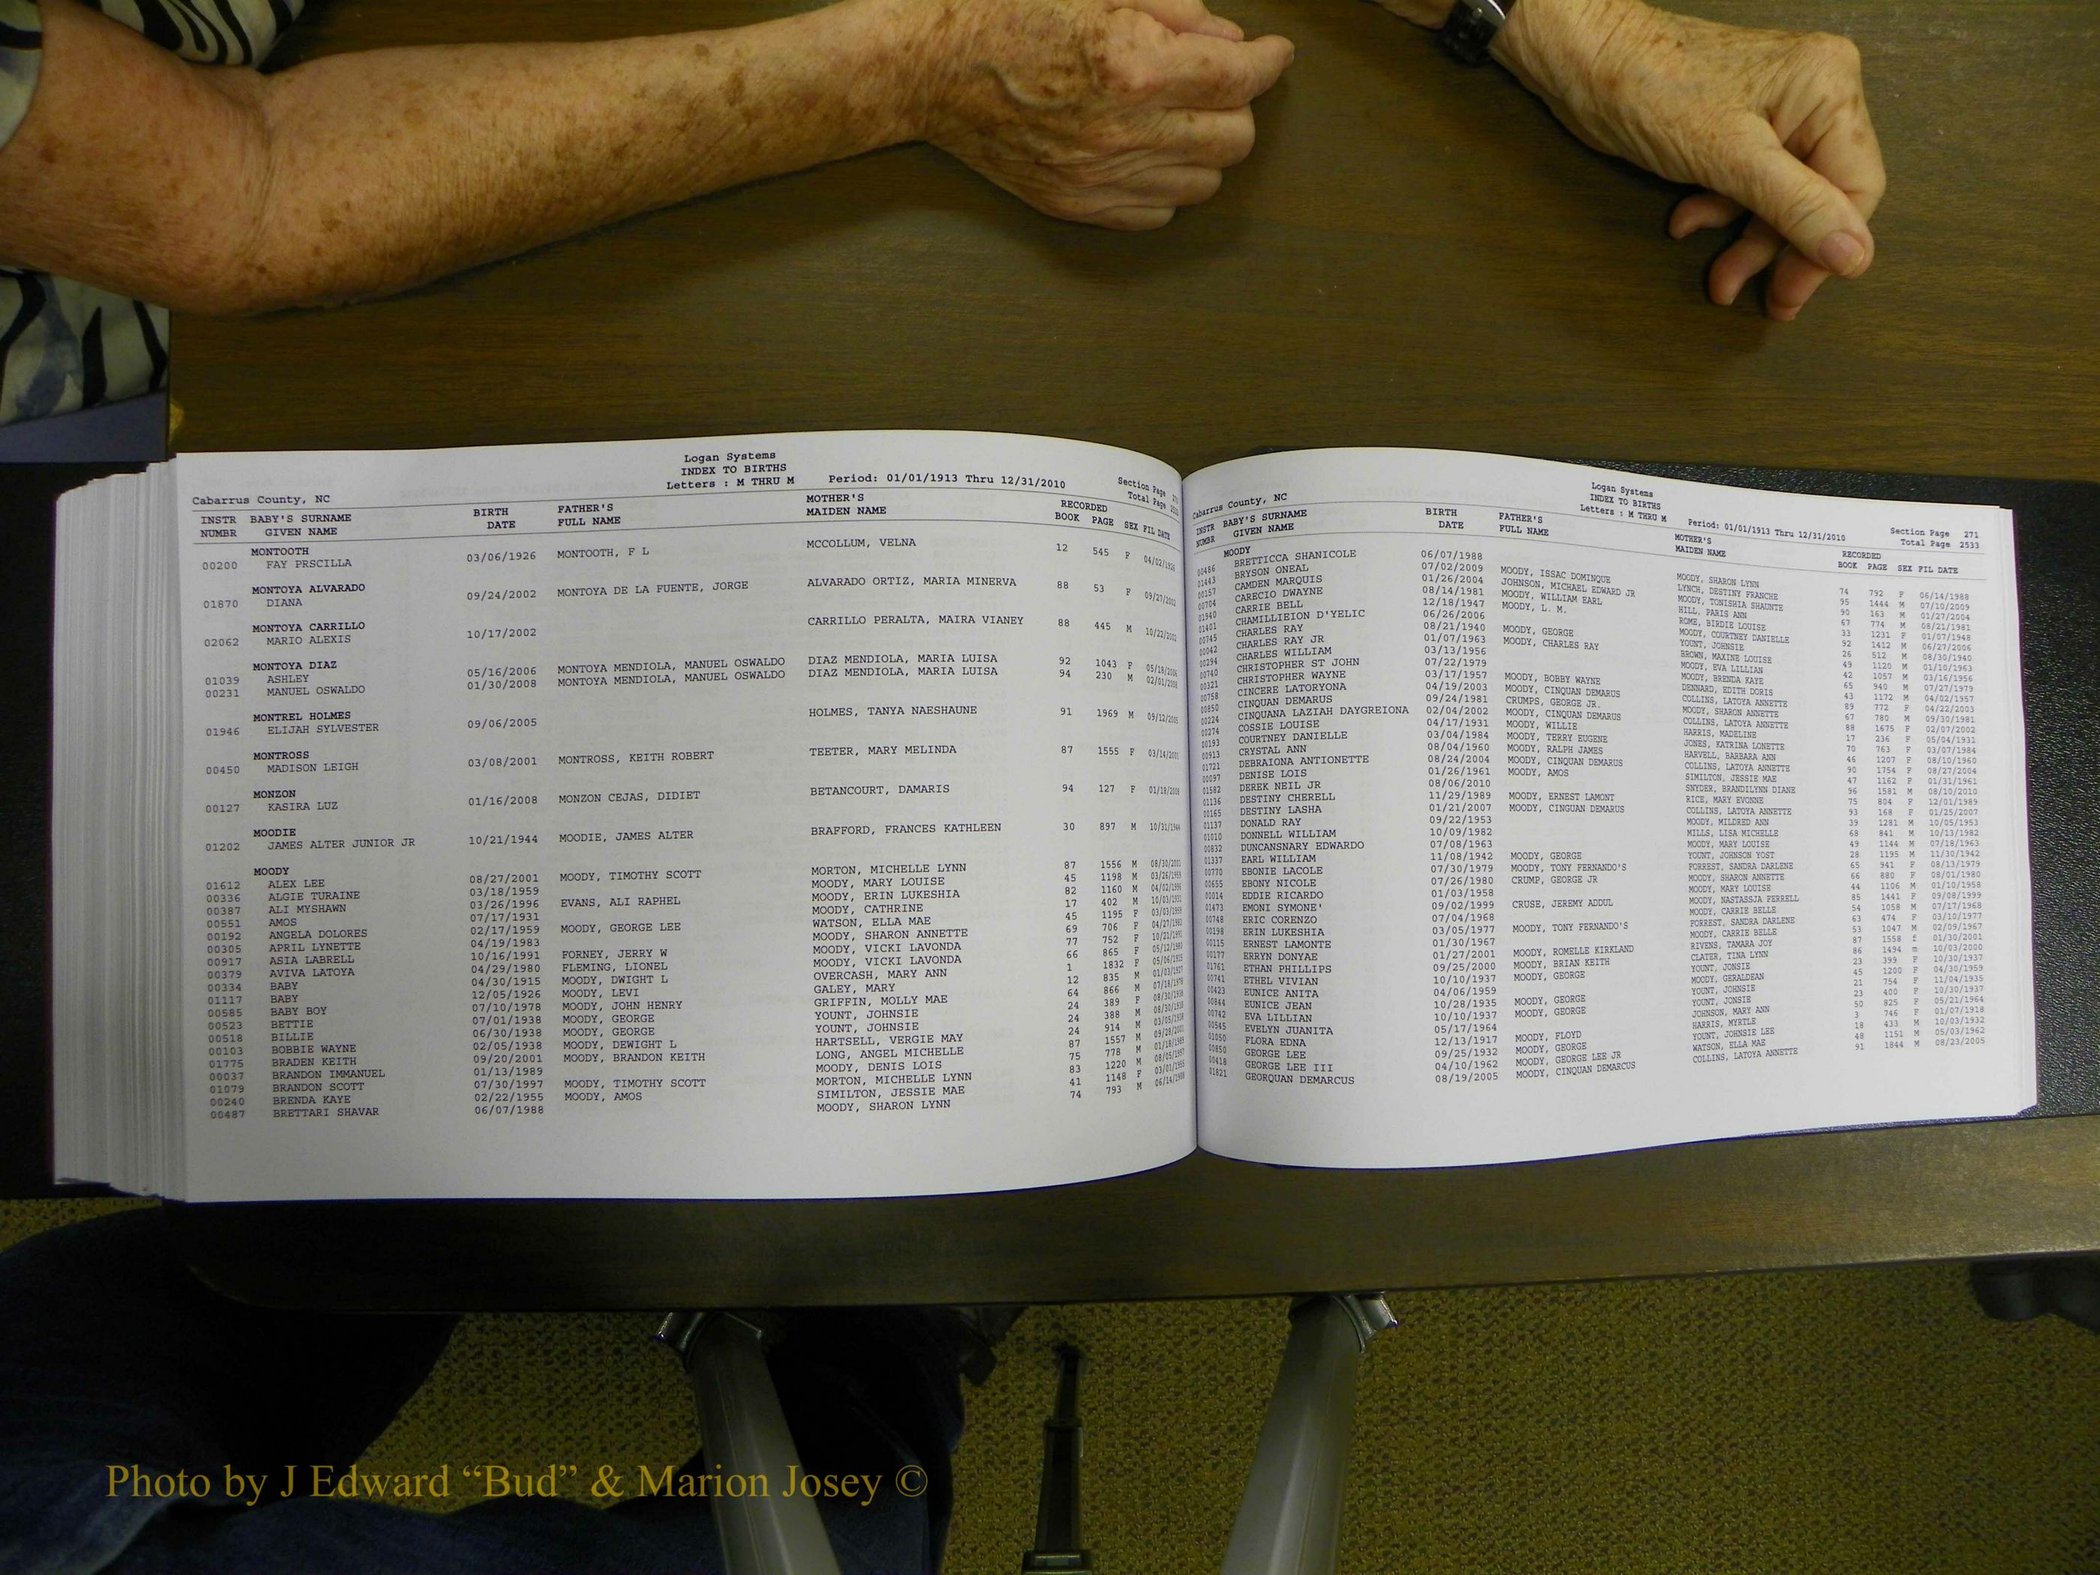 Logan Systems
INDEX TO BIRTHS
Letters : M THRU M Period: 01/01/1913 Thru 12/31/2010
Cabarrus County, NC Section Page
Total Page
INSTR BABY'S SURNAME BIRTH FATHER'S MOTHER'S RECORDED
NUMBR GIVEN NAME DATE FULL NAME MAIDEN NAME BOOK PAGE SEX FIL DATE
MONTOOTH
00200 FAY PRSCILLA 03/06/1926 MONTOOTH, F L MCCOLLUM, VELNA 12 545 F 04/02/1926
MONTOYA ALVARADO
01870 DIANA 09/24/2002 MONTOYA DE LA FUENTE, JORGE ALVARADO ORTIZ, MARIA MINERVA 88 53 F 09/27/2002
MONTOYA CARRILLO
02062 MARIO ALEXIS 10/17/2002 CARRILLO PERALTA, MAIRA VIANEY 88 445 M 10/22/2002
MONTOYA DIAZ
01039 ASHLEY 05/16/2006 MONTOYA MENDIOLA, MANUEL OSWALDO DIAZ MENDIOLA, MARIA LUISA 92 1043 F 05/18/2006
00231 MANUEL OSWALDO 01/30/2008 MONTOYA MENDIOLA, MANUEL OSWALDO DIAZ MENDIOLA, MARIA LUISA 94 230 M 02/01/2008
MONTREL HOLMES
01946 ELIJAH SYLVESTER 09/06/2005 HOLMES, TANYA NAESHAUNE 91 1969 M 09/12/2005
MONTROSS
00450 MADISON LEIGH 03/08/2001 MONTROSS, KEITH ROBERT TEETER, MARY MELINDA 87 1555 F 03/14/2001
MONZON
00127 KASIRA LUZ 01/16/2008 MONZON CEJAS, DIDIET BETANCOURT, DAMARIS 94 127 F 01/18/2008
MOODIE
01202 JAMES ALTER JUNIOR JR 10/21/1944 MOODIE, JAMES ALTER BRAFFORD, FRANCES KATHLEEN 30 897 M 10/31/1944
MOODY
01612 ALEX LEE 08/27/2001 MOODY, TIMOTHY SCOTT MORTON, MICHELLE LYNN 87 1556 M 08/30/2001
00336 ALGIE TURAINE 03/18/1959 MOODY, MARY LOUISE 45 1198 M 03/26/1959
00387 ALI MYSHAWN 03/26/1996 EVANS, ALI RAPHEL MOODY, ERIN LUKESHIA 82 1160 M 04/02/1996
00551 AMOS 07/17/1931 MOODY, CATHRINE 17 402 M 10/03/1931
00192 ANGELA DOLORES 02/17/1959 MOODY, GEORGE LEE WATSON, ELLA MAE 45 1195 F 03/03/1959
00305 APRIL LYNETTE 04/19/1983 MOODY, SHARON ANNETTE 69 706 F 04/27/1983
00917 ASIA LABRELL 10/16/1991 FORNEY, JERRY W MOODY, VICKI LAVONDA 77 752 F 10/21/1991
00379 AVIVA LATOYA 04/29/1980 FLEMING, LIONEL MOODY, VICKI LAVONDA 66 865 F 05/12/1980
00334 BABY 04/30/1915 MOODY, DWIGHT L OVERCASH, MARY ANN 1 1832 F 05/06/1915
01117 BABY 12/05/1926 MOODY, LEVI GALEY, MARY 12 835 M 01/03/1927
00585 BABY BOY 07/10/1978 MOODY, JOHN HENRY GRIFFIN, MOLLY MAE 64 866 M 07/18/1978
00523 BETTIE 07/01/1938 MOODY, GEORGE YOUNT, JOHNSIE 24 389 F 08/30/1938
00518 BILLIE 06/30/1938 MOODY, GEORGE YOUNT, JOHNSIE 24 388 M 08/30/1938
00103 BOBBIE WAYNE 02/05/1938 MOODY, DEWIGHT L HARTSELL, VERGIE MAY 24 914 M 03/05/1938
01775 BRADEN KEITH 09/20/2001 MOODY, BRANDON KEITH LONG, ANGEL MICHELLE 87 1557 M 09/28/2001
00037 BRANDON IMMANUEL 01/13/1989 MOODY, DENIS LOIS 75 778 M 01/18/1989
01079 BRANDON SCOTT 07/30/1997 MOODY, TIMOTHY SCOTT MORTON, MICHELLE LYNN 83 1220 M 08/05/1997
00240 BRENDA KAYE 02/22/1955 MOODY, AMOS SIMILTON, JESSIE MAE 41 1148 F 03/01/1955
00487 BRETTARI SHAVAR 06/07/1988 MOODY, SHARON LYNN 74 793 M 06/14/1988
Logan Systems
INDEX TO BIRTHS
Letters : M THRU M Period: 01/01/1913 Thru 12/31/2010
Cabarrus County, NC Section Page 271
Total Page 2533
INSTR BABY'S SURNAME BIRTH FATHER'S MOTHER'S RECORDED
NUMBR GIVEN NAME DATE FULL NAME MAIDEN NAME BOOK PAGE SEX FIL DATE
MOODY
00486 BRETTICCA SHANICOLE 06/07/1988 MOODY, SHARON LYNN 74 792 F 06/14/1988
01443 BRYSON ONEAL 07/02/2009 MOODY, ISSAC DOMINQUE LYNCH, DESTINY FRANCHE 95 1444 M 07/10/2009
00157 CAMDEN MARQUIS 01/26/2004 JOHNSON, MICHAEL EDWARD JR MOODY, TONISHIA SHAUNTE 90 163 M 01/27/2004
00704 CARECIO DWAYNE 08/14/1981 MOODY, WILLIAM EARL HILL, PARIS ANN 67 774 M 08/21/1981
01940 CARRIE BELL 12/18/1947 MOODY, L. M. ROME, BIRDIE LOUISE 33 1231 F 01/07/1948
01401 CHAMILLIEION D'YELIC 06/26/2006 MOODY, COURTNEY DANIELLE 92 1412 M 06/27/2006
00745 CHARLES RAY 08/21/1940 MOODY, GEORGE YOUNT, JOHNSIE 26 512 M 08/30/1940
00042 CHARLES RAY JR 01/07/1963 MOODY, CHARLES RAY BROWN, MAXINE LOUISE 49 1120 M 01/10/1963
00294 CHARLES WILLIAM 03/13/1956 MOODY, EVA LILLIAN 42 1057 M 03/16/1956
00740 CHRISTOPHER ST JOHN 07/22/1979 MOODY, BRENDA KAYE 65 940 M 07/27/1979
00321 CHRISTOPHER WAYNE 03/17/1957 MOODY, BOBBY WAYNE DENNARD, EDITH DORIS 43 1172 M 04/02/1957
00758 CINCERE LATORYONA 04/19/2003 MOODY, CINQUAN DEMARUS COLLINS, LATOYA ANNETTE 89 772 F 04/22/2003
00850 CINQUAN DEMARUS 09/24/1981 CRUMPS, GEORGE JR. MOODY, SHARON ANNETTE 67 780 M 09/30/1981
00224 CINQUANA LAZIAH DAYGREIONA 02/04/2002 MOODY, CINQUAN DEMARUS COLLINS, LATOYA ANNETTE 88 1675 F 02/07/2002
00274 COSSIE LOUISE 04/17/1931 MOODY, WILLIE HARRIS, MADELINE 17 236 F 05/04/1931
00193 COURTNEY DANIELLE 03/04/1984 MOODY, TERRY EUGENE JONES, KATRINA LONETTE 70 763 F 03/07/1984
00913 CRYSTAL ANN 08/04/1960 MOODY, RALPH JAMES HARVELL, BARBARA ANN 46 1207 F 08/10/1960
01721 DEBRAIONA ANTIONETTE 08/24/2004 MOODY, CINQUAN DEMARUS COLLINS, LATOYA ANNETTE 90 1754 F 08/27/2004
00097 DENISE LOIS 01/26/1961 MOODY, AMOS SIMILTON, JESSIE MAE 47 1162 F 01/31/1961
01582 DEREK NEIL JR 08/06/2010 SNYDER, BRANDILYNN DIANE 96 1581 M 08/10/2010
01136 DESTINY CHERELL 11/29/1989 MOODY, ERNEST LAMONT RICE, MARY EVONNE 75 804 F 12/01/1989
00165 DESTINY LASHA 01/21/2007 MOODY, CINQUAN DEMARUS COLLINS, LATOYA ANNETTE 93 168 F 01/25/2007
01137 DONALD RAY 09/22/1953 MOODY, MILDRED ANN 39 1281 M 10/05/1953
01010 DONNELL WILLIAM 10/09/1982 MILLS, LISA MICHELLE 68 841 M 10/13/1982
00832 DUNCANSNARY EDWARDO 07/08/1963 MOODY, MARY LOUISE 49 1144 M 07/18/1963
01337 EARL WILLIAM 11/08/1942 MOODY, GEORGE YOUNT, JOHNSON YOST 28 1195 M 11/30/1942
00770 EBONIE LACOLE 07/30/1979 MOODY, TONY FERNANDO'S FORREST, SANDRA DARLENE 65 941 F 08/13/1979
00655 EBONY NICOLE 07/26/1980 CRUMP, GEORGE JR MOODY, SHARON ANNETTE 66 880 F 08/01/1980
00014 EDDIE RICARDO 01/03/1958 MOODY, MARY LOUISE 44 1106 M 01/10/1958
01473 EMONI SYMONE' 09/02/1999 CRUSE, JEREMY ADDUL MOODY, NASTASSJA FERRELL 85 1441 F 09/08/1999
00748 ERIC CORENZO 07/04/1968 MOODY, CARRIE BELLE 54 1058 M 07/17/1968
00198 ERIN LUKESHIA 03/05/1977 MOODY, TONY FERNANDO'S FORREST, SANDRA DARLENE 63 474 F 03/10/1977
00115 ERNEST LAMONTE 01/30/1967 MOODY, CARRIE BELLE 53 1047 M 02/09/1967
00177 ERRYN DONYAE 01/27/2001 MOODY, ROMELLE KIRKLAND RIVENS, TAMARA JOY 87 1558 f 01/30/2001
01761 ETHAN PHILLIPS 09/25/2000 MOODY, BRIAN KEITH CLATER, TINA LYNN 86 1494 m 10/03/2000
00741 ETHEL VIVIAN 10/10/1937 MOODY, GEORGE YOUNT, JONSIE 23 399 F 10/30/1937
00423 EUNICE ANITA 04/06/1959 MOODY, GERALDEAN 45 1200 F 04/30/1959
00844 EUNICE JEAN 10/28/1935 MOODY, GEORGE YOUNT, JOHNSIE 21 754 F 11/04/1935
00742 EVA LILLIAN 10/10/1937 MOODY, GEORGE YOUNT, JONSIE 23 400 F 10/30/1937
00545 EVELYN JUANITA 05/17/1964 JOHNSON, MARY ANN 50 825 F 05/21/1964
01050 FLORA EDNA 12/13/1917 MOODY, FLOYD HARRIS, MYRTLE 3 746 F 01/07/1918
00850 GEORGE LEE 09/25/1932 MOODY, GEORGE YOUNT, JOHNSIE LEE 18 433 M 10/03/1932
00418 GEORGE LEE III 04/10/1962 MOODY, GEORGE LEE JR WATSON, ELLA MAE 48 1151 M 05/03/1962
01821 GEORQUAN DEMARCUS 08/19/2005 MOODY, CINQUAN DEMARCUS COLLINS, LATOYA ANNETTE 91 1844 M 08/23/2005
Photo by J Edward “Bud” & Marion Josey ©